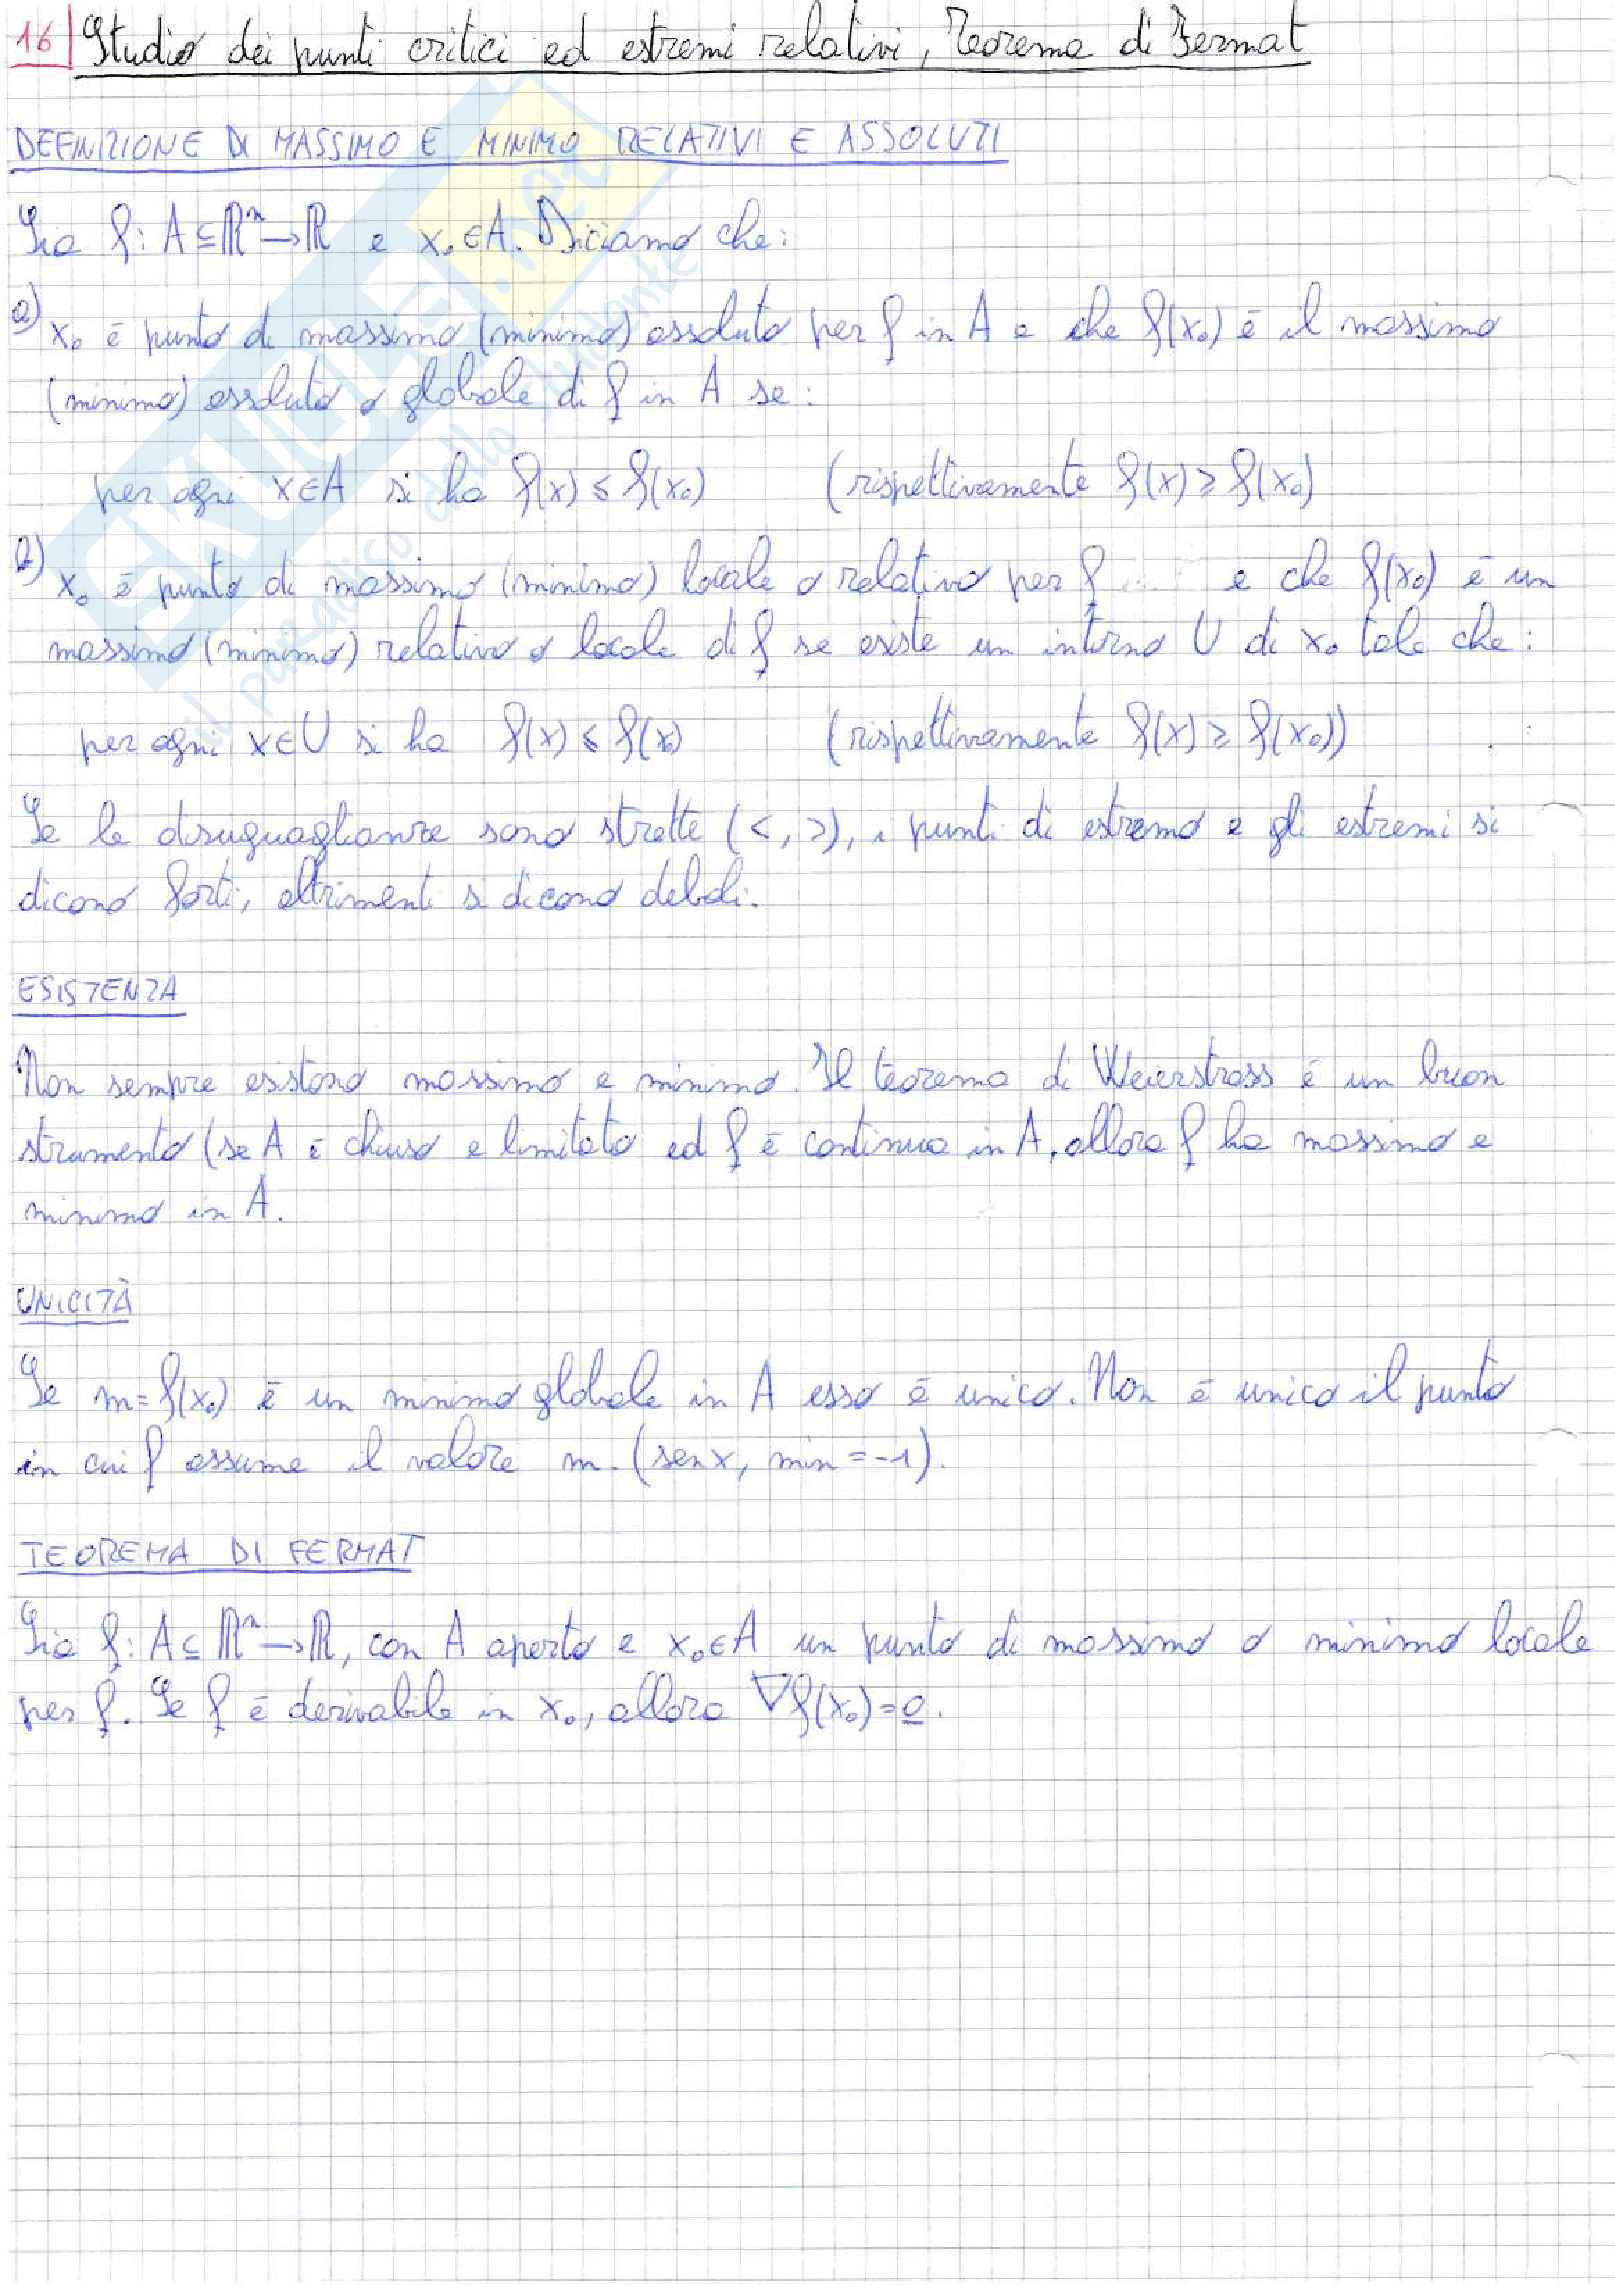 16 Studio dei punti critici ed estremi relativi, Teorema di Fermat
DEFINIZIONE DI MASSIMO E MINIMO RELATIVI E ASSOLUTI
Sia f: A ⊆ ℝⁿ → ℝ e x₀ ∈ A. Diciamo che:
a) x₀ è punto di massimo (minimo) assoluto per f in A e che f(x₀) è il massimo
(minimo) assoluto o globale di f in A se:
per ogni x ∈ A si ha f(x) ≤ f(x₀) (rispettivamente f(x) ≥ f(x₀)
b) x₀ è punto di massimo (minimo) locale o relativo per f e che f(x₀) è un
massimo (minimo) relativo o locale di f se esiste un intorno U di x₀ tale che:
per ogni x ∈ U si ha f(x) ≤ f(x₀) (rispettivamente f(x) ≥ f(x₀))
Se le disuguaglianze sono strette (<, >), i punti di estremo e gli estremi si
dicono forti, altrimenti si dicono deboli.
ESISTENZA
Non sempre esistono massimo e minimo. Il teorema di Weierstrass è un buon
strumento (se A è chiuso e limitato ed f è continua in A, allora f ha massimo e
minimo in A.
UNICITÀ
Se m = f(x₀) è un minimo globale in A esso è unico. Non è unico il punto
in cui f assume il valore m. (sen x, min = -1).
TEOREMA DI FERMAT
Sia f: A ⊆ ℝⁿ → ℝ, con A aperto e x₀ ∈ A un punto di massimo o minimo locale
per f. Se f è derivabile in x₀, allora ∇f(x₀) = <u>0</u>.
SKUOLA.net
il paradiso dello studente